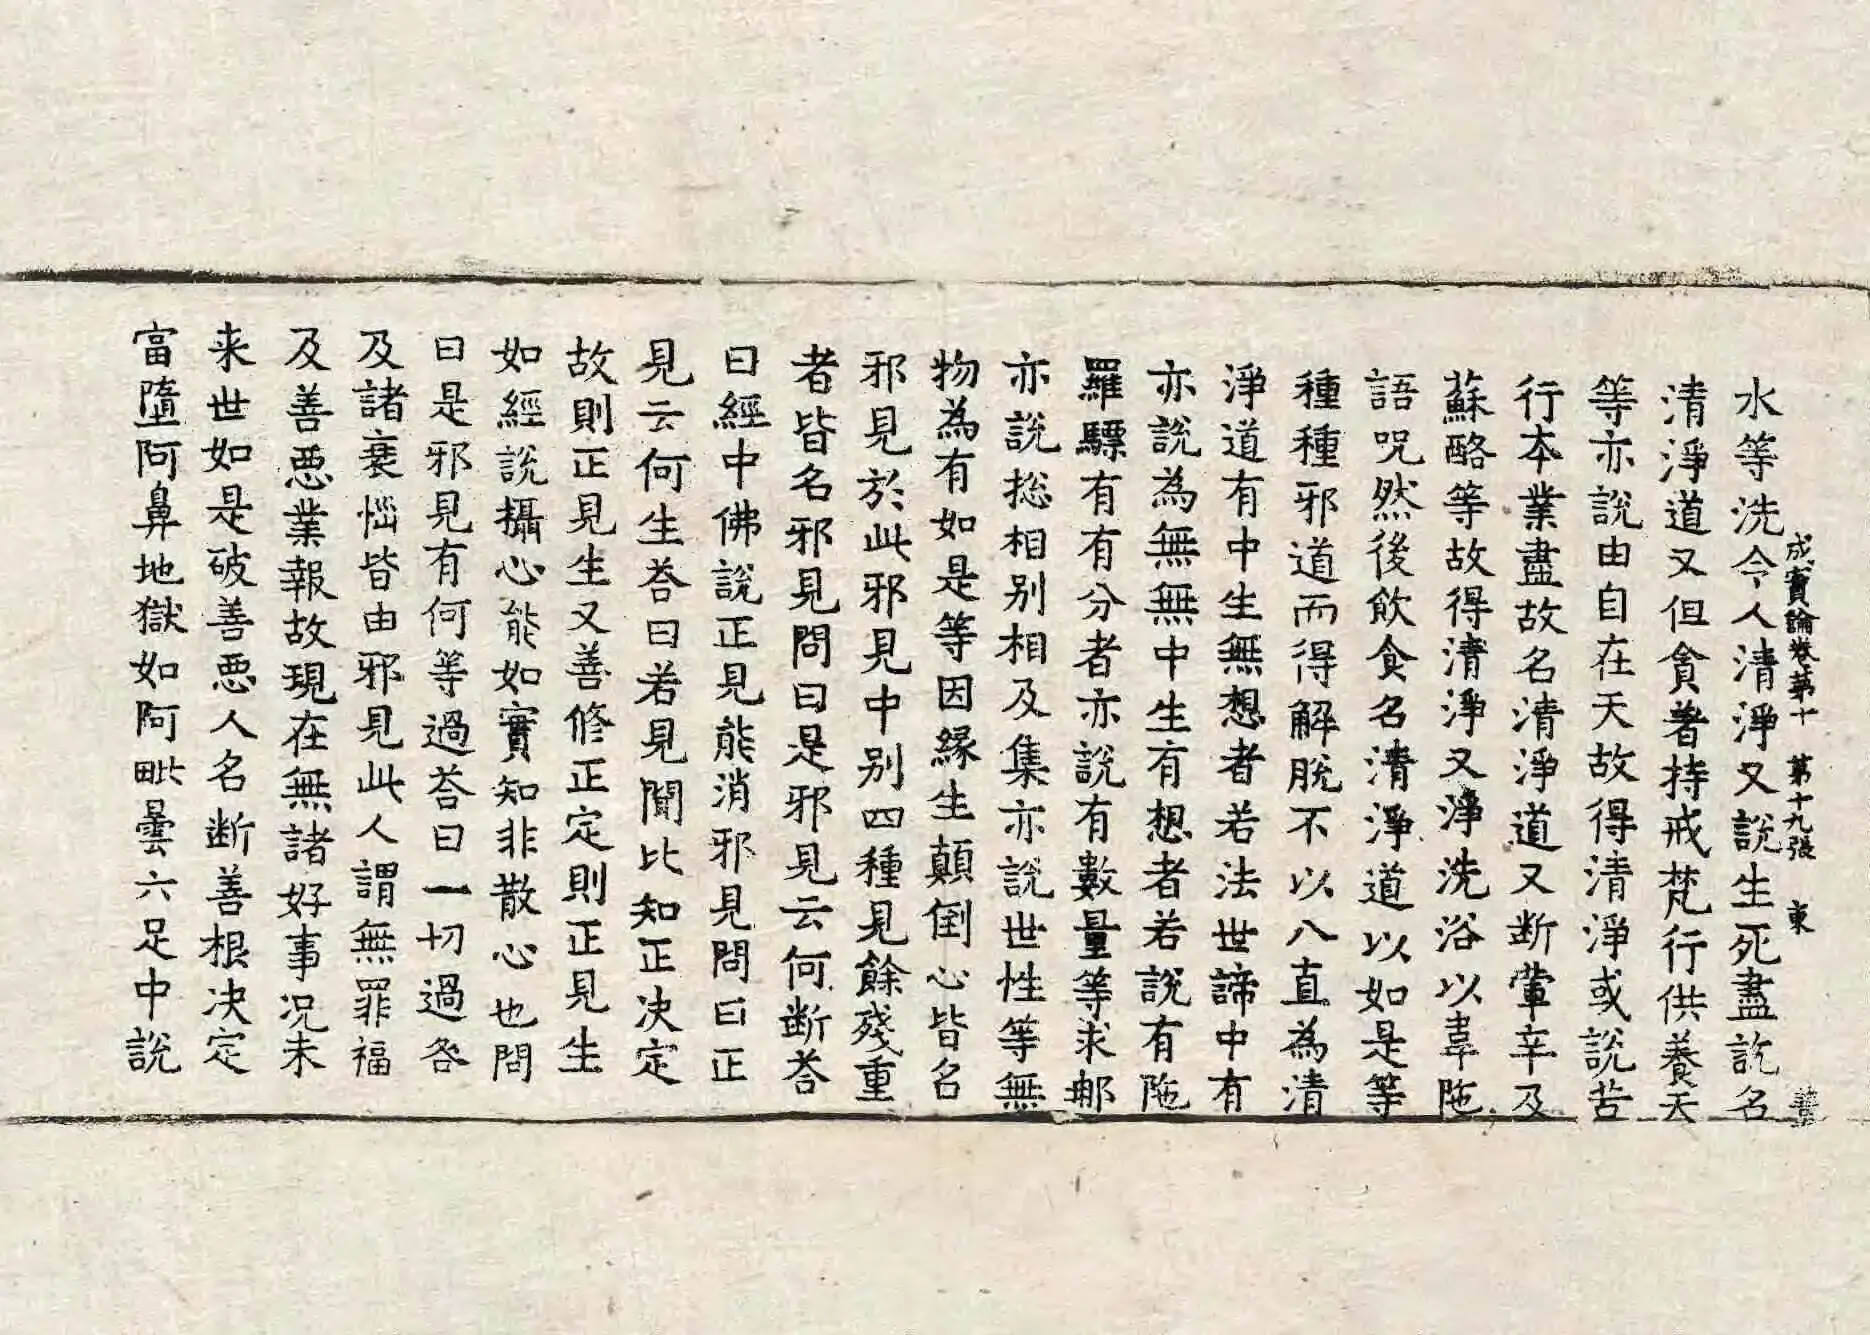 成實論卷第十　第十九張　東
水等洗令人清淨又說生死盡訖名
清淨道又但貪著持戒梵行供養天
等亦說由自在天故得清淨或說苦
行本業盡故名清淨道又断葷辛及
蘇酪等故得清淨又淨洗浴以韋陁
語呪然後飲食名清淨道以如是等
種種邪道而得解脫不以八直為清
淨道有中生無想者若法世諦中有
亦說為無無中生有想者若說有陁
羅驃有有分者亦說有數量等求那
亦說揔相別相及集亦說世性等無
物為有如是等因緣生顛倒心皆名
邪見於此邪見中別四種見餘殘重
者皆名邪見問曰是邪見云何断荅
曰經中佛說正見能消邪見問曰正
見云何生荅曰若見聞比知正决定
故則正見生又善修正定則正見生
如經說攝心能如實知非散心也問
曰是邪見有何等過荅曰一切過咎
及諸衰惱皆由邪見此人謂無罪福
及善惡業報故現在無諸好事况未
来世如是破善惡人名断善根决定
當墮阿鼻地獄如阿毗曇六足中說